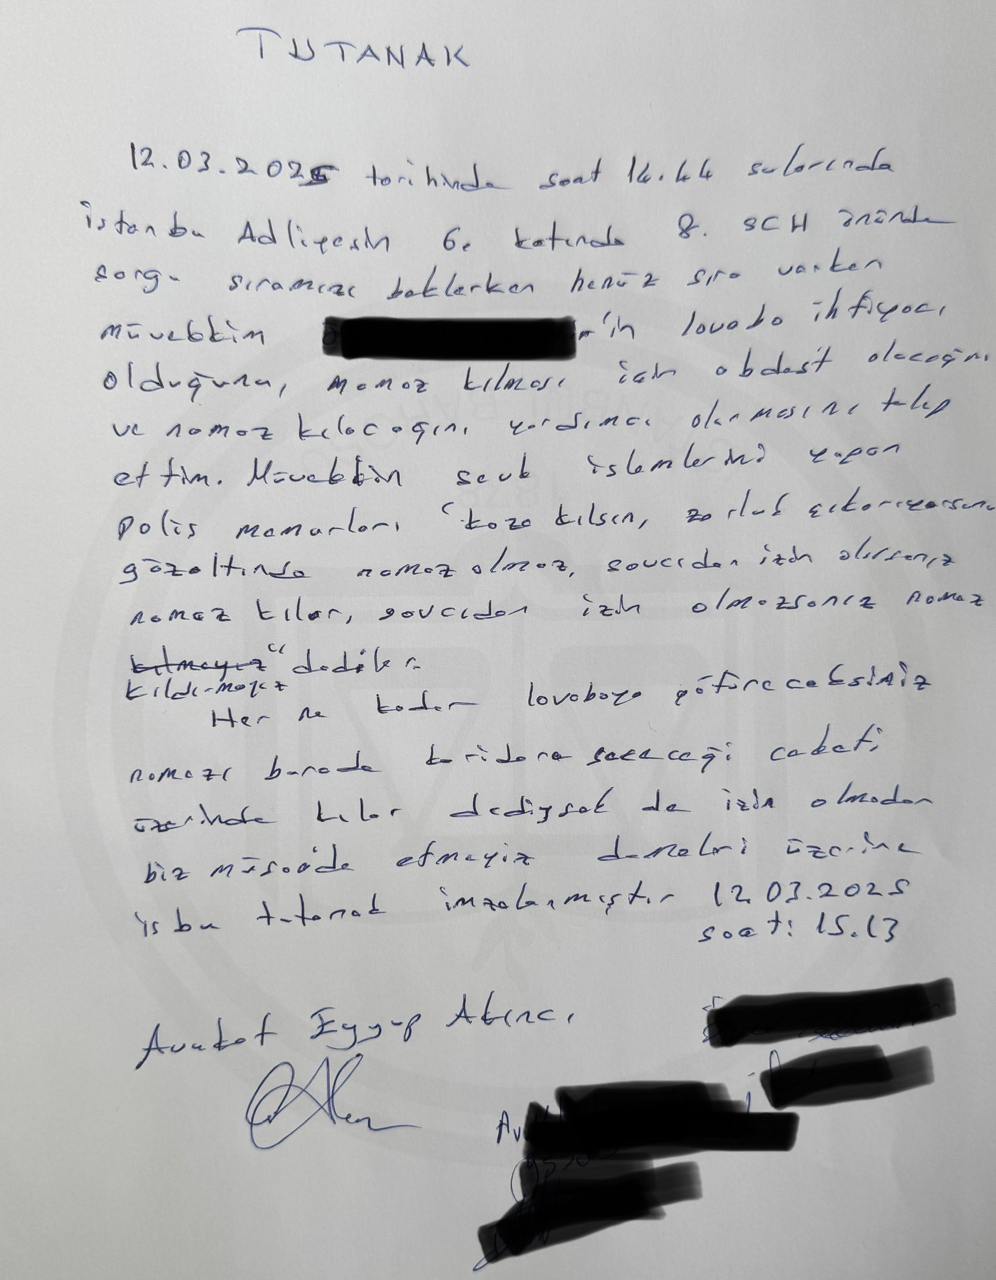 TUTANAK
12.03.2025 tarihinde saat 14.44 sularında
İstanbu Adliyesin 6. katında 8. SCH önünde
sorgu sıramızı beklerken henüz sıra varken
müvekkim 'in lavabo ihtiyacı
olduğunu, namaz kılması için abdest alacağını
ve namaz kılacağını yardımcı olunmasını talep
ettim. Müvekkilin sevk işlemlerini yapan
polis memurları "kaza kılsın, zorluk çıkarıyorsunuz
gözaltında namaz olmaz, savcıdan izin alırsanız
namaz kılar, savcıdan izin almazsanız namaz
kılmayız" dediler.
kıldırmayız
Her ne kadar lavaboya götüreceksiniz
namazı burada koridora sereceği ceketi
üzerinde kılar dediysek de izin olmadan
biz müsaade etmeyiz demeleri üzerine
iş bu tutanak imzalanmıştır 12.03.2025
saat: 15.13
Avukat Eyyup Akıncı
Av